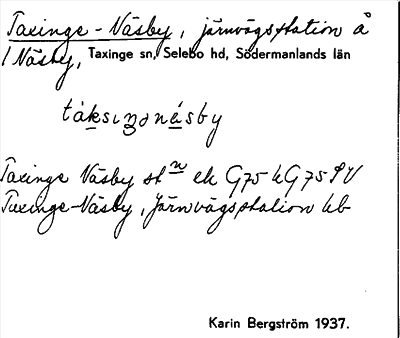 Taxinge-Näsby, järnvägsstation å
1 Näsby, Taxinge sn, Selebo hd, Södermanlands län
táksıŋənä́sby
Taxinge Näsby st n ek G75 kG75 SV
Taxinge-Näsby, Järnvägsstation kb
Karin Bergström 1937.